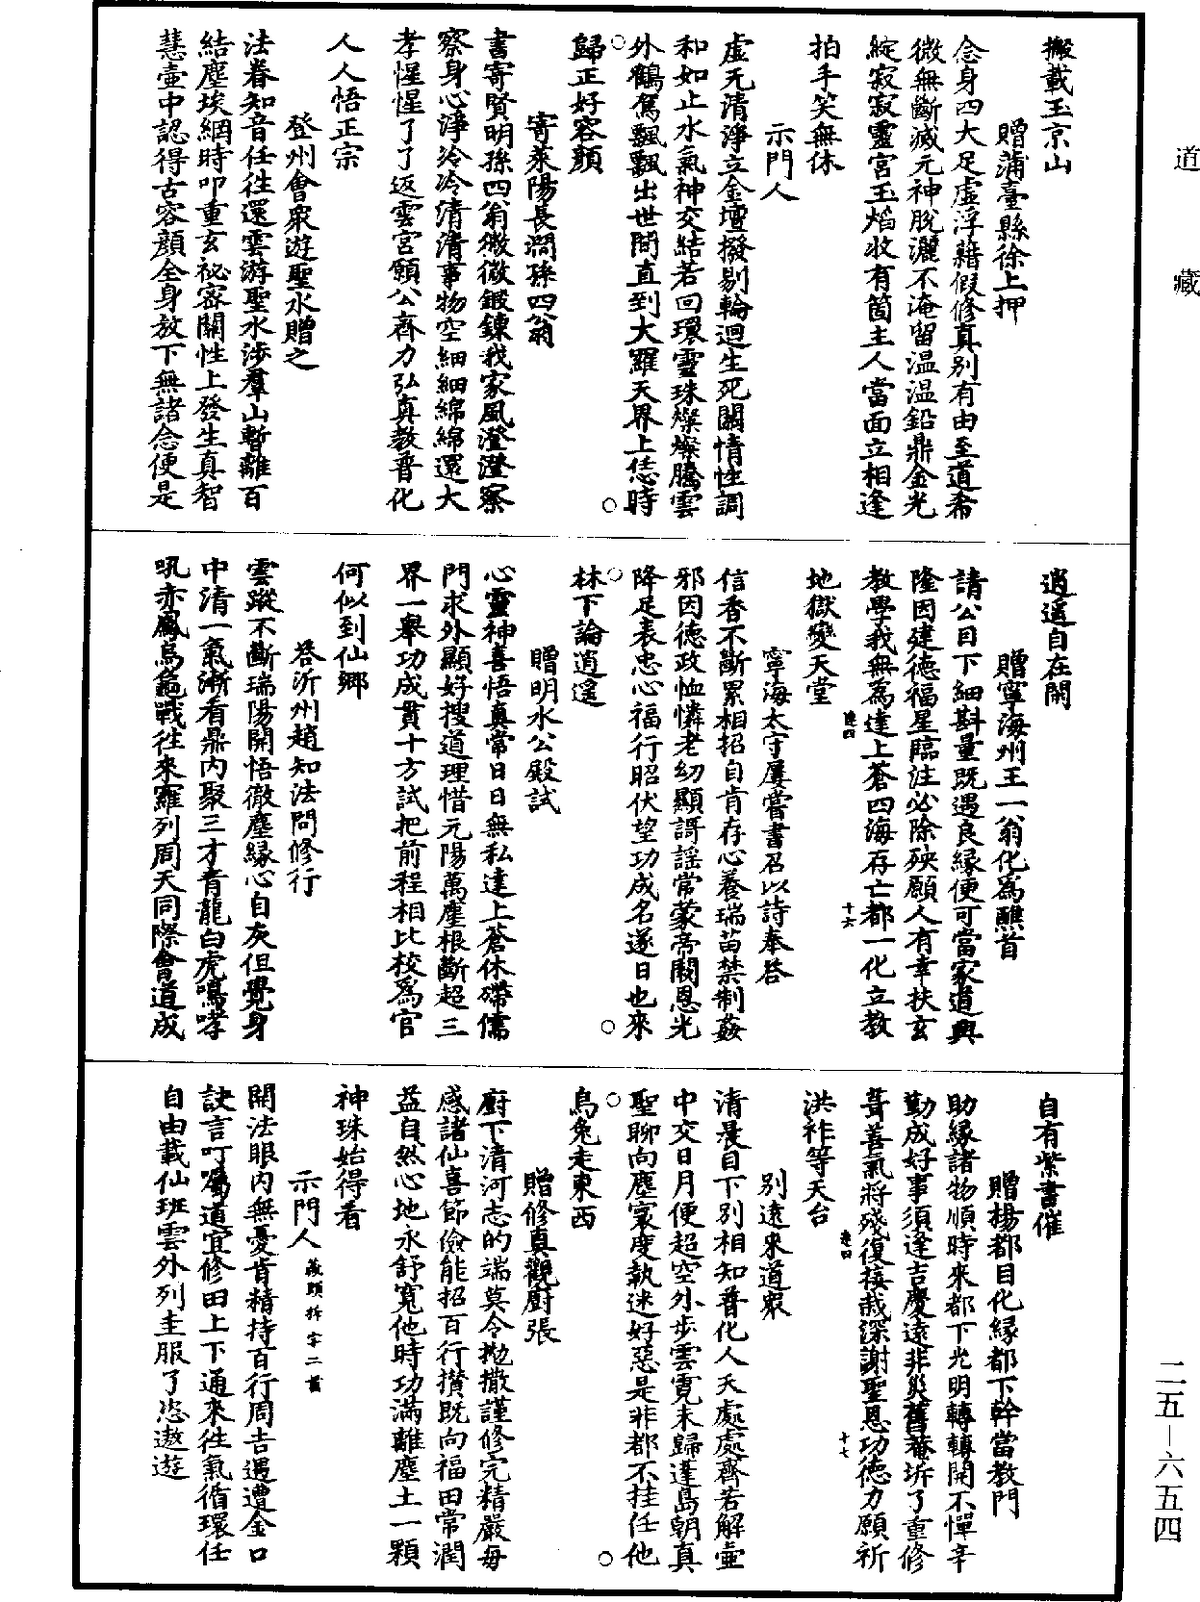 道藏
搬載玉京山
贈蒲臺縣徐上押
念身四大足虛浮藉假修真别有由至道希
微無斷滅元神脫灑不淹留温温鉛鼎金光
綻寂寂靈宮玉焰收有箇主人當面立相逢
拍手笑無休
示門人
虛无清淨立金壇撥剔輪迴生死關情性調
和如止水氣神交結若回環靈珠燦燦騰雲
外鶴駕飄飄出世間直到大羅天界上恁時
歸正好容顏
寄萊陽長澗孫四翁
書寄賢明孫四翁微微鍛鍊我家風澄澄察
察身心淨泠泠清清事物空細細綿綿還大
孝惺惺了了返雲宮願公齊力弘真教普化
人人悟正宗
登州會衆遊聖水贈之
法眷知音任往還雲游聖水渉羣山暫離百
結塵埃網時叩重玄祕密關性上發生真智
慧壺中認得古容顏全身放下無諸念便是
逍遥自在閑
贈寧海州王一翁化爲醮首
請公目下細斟量既遇良緣便可當家道興
隆因建德福星臨注必除殃願人有幸扶玄
教學我無爲達上蒼四海存亡都一化立教
地獄變天堂
寧海太守屢嘗書召以詩奉答
信香不斷累相招自肯存心養瑞苗禁制姦
邪因德政恤憐老幼顯謌謡常蒙帝闕恩光
降足表忠心福行昭伏望功成名遂日也來
林下論逍遥
贈明水公殿試
心靈神喜悟真常日日無私達上蒼休礴儒
門求外顯好搜道理惜元陽萬塵根斷超三
界一舉功成貫十方試把前程相比校爲官
何似到仙鄉
答沂州趙知法問修行
雲蹤不斷瑞陽開悟徹塵緣心自灰但覺身
中清一氣漸看鼎内聚三才青龍白虎鳴哮
吼赤鳳烏龜戰往來羅列周天同際會道成
自有紫書催
贈楊都目化緣都下幹當教門
助緣諸物順時來都下光明轉轉開不憚辛
勤成好事須逢吉慶遠非災舊菴坼了重修
葺善氣將殘復接栽深謝聖恩功德力願祈
洪祚等天台
别遠來道衆
清晨目下别相知普化人天處處齊若解壺
中交日月便超空外步雲霓未歸蓬島朝真
聖聊向塵寰度執迷好惡是非都不挂任他
烏兔走東西
贈修真觀廚張
廚下清河志的端莫令抛撒謹修完精嚴每
感諸仙喜節儉能招百行攅既向福田常潤
益自然心地永舒寬他時功滿離塵土一顆
神珠始得看
示門人藏頭拆字二首
開法眼内無憂肯精持百行周吉遇遭金口
訣言叮嘱道宜修田上下通來往氣循環任
自由載仙班雲外列圭服了恣遨遊
二五－六五四